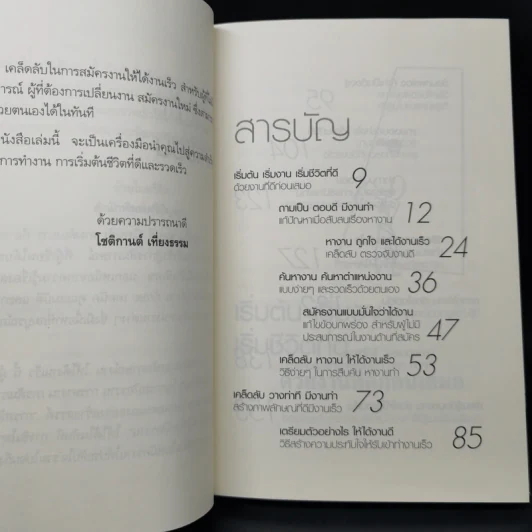 เคล็ดลับในการสมัครงานให้ได้งานเร็ว
ผู้ที่ต้องการเปลี่ยนงาน สมัครงานใหม่
ตนเองได้ในทันที
จะเป็นเครื่องมือนำคุณไปสู่
การทำงาน การเริ่มต้นชีวิตที่ดีและรวดเร็ว
ด้วยความปรารถนาดี
โชติกานต์ เที่ยงธรรม
สารบัญ
เริ่มต้น เริ่มงาน เริ่มชีวิตที่ดี
ด้วยงานที่ดีก่อนเสมอ
9
ถามเป็น ตอบดี มีงานทำ
แก้ปัญหาเมื่อสับสนเรื่องหางาน
12
หางาน ถูกใจ และได้งานเร็ว
เคล็ดลับ ตรวจจับงานดี
24
ค้นหางาน ค้นหาตำแหน่งงาน
แบบง่ายๆ และรวดเร็วด้วยตนเอง
36
สมัครงานแบบมั่นใจว่าได้งาน
แก้ไขข้อบกพร่อง สำหรับผู้ไม่มี
ประสบการณ์ในงานด้านที่สมัคร
47
เคล็ดลับ หางาน ให้ได้งานเร็ว
วิธีง่ายๆ ในการสืบค้น หางานทำ
53
เคล็ดลับ วางท่าที มีงานทำ
สร้างภาพลักษณ์ที่ดีมีงานเร็ว
73
เตรียมตัวอย่างไร ให้ได้งานดี
วิธีสร้างความประทับใจให้รับเข้าทำงานเร็ว
85